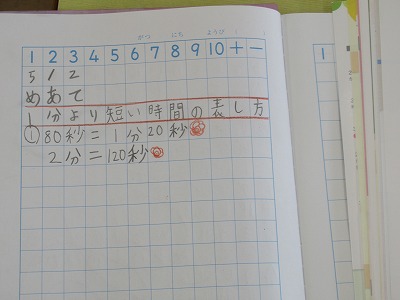 がつ にち ようび
1 2 3 4 5 6 7 8 9 10 + −
5/2
めあて
1分より短い時間の表し方
① 80秒=1分20秒
2分=120秒
1